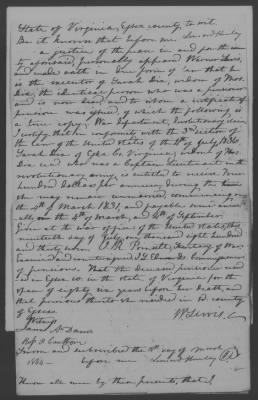 State of Virginia, Essex county to wit.
Be it known that before me
a justice of the peace in and for the co
aforesaid, personally appeared Warner Lewis,
and made oath in due form of law that he
is the executor of Sarah Dix, widow of Thos.
Dix, the identical person who was a pensioner
and is now dead, and to whom a certificate of
pension was issued, of which the following is
a true copy; War Department, Revolutionary claim
I certify that in conformity with the 3rd section of
the law of the United States of the 4th of July 1836
Sarah Dix of Essex Co. Virginia, widow of Thos.
Dix who was a in the
revolutionary army, is entitled to receive
hundred dollars per annum, during the time
she may remain unmarried, commencing on
the 4th of March 1831, and payable semi annu-
ally, on the 4th of March, and 4th of September
Given at the war office of the United States, this
nineteenth day of July, one thousand eight hundred
and thirty nine. J. R. Poinsett, Secretary of War
Examined and countersigned J. L. Edwards Commissioner
of pensions. That the deceased pensioner resided
in Essex co. in the state of Virginia for the
space of eighty six years before her death, and
that previous thereto she resided in sd. county
of Essex
W Lewis
James A Davis
Sworn and subscribed the day of March
before me
Know all men by these presents, that I